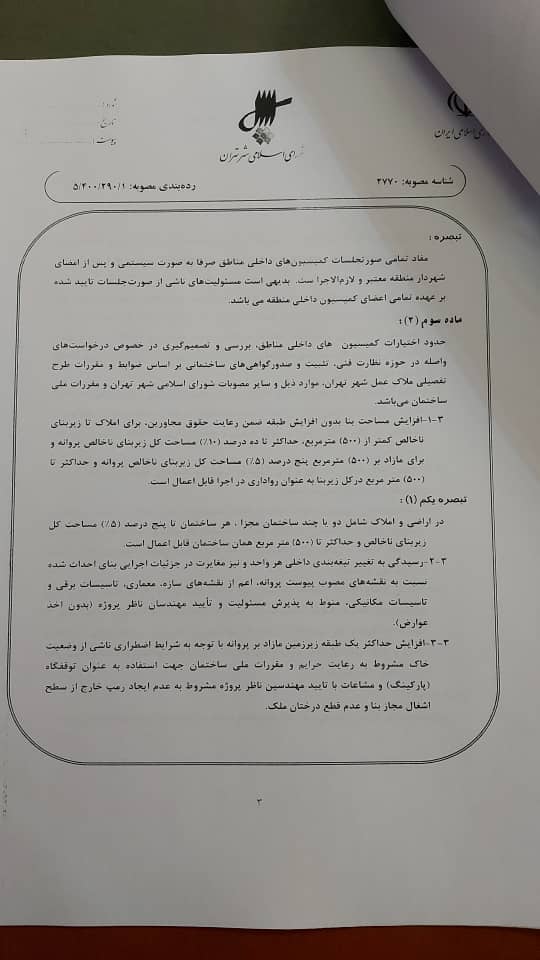 شماره:
تاریخ
پیوست:
اسلامی ایران
شورای اسلامی شهر تهران
شناسه مصوبه: ۲۷۷۰
رده‌بندی مصوبه: ۵/۴۰۰/۲۹۰/۱
تبصره:
مفاد تمامی صورتجلسات کمیسیون‌های داخلی مناطق صرفا به صورت سیستمی و پس از امضای
شهردار منطقه معتبر و لازم‌الاجرا ست. بدیهی است مسئولیت‌های ناشی از صورت‌جلسات تایید شده
بر عهده تمامی اعضای کمیسیون داخلی منطقه می باشد.
ماده سوم (۳):
حدود اختیارات کمیسیون های داخلی مناطق، بررسی و تصمیم‌گیری در خصوص درخواست‌های
واصله در حوزه نظارت فنی، تثبیت و صدورگواهی‌های ساختمانی بر اساس ضوابط و مقررات طرح
تفصیلی ملاک عمل شهر تهران، موارد ذیل و سایر مصوبات شورای اسلامی شهر تهران و مقررات ملی
ساختمان می‌باشد.
۳-۱-افزایش مساحت بنا بدون افزایش طبقه ضمن رعایت حقوق مجاورین، برای املاک تا زیربنای
ناخالص کمتر از (۵۰۰) مترمربع، حداکثر تا ده درصد (۱۰٪) مساحت کل زیربنای ناخالص پروانه و
برای مازاد بر (۵۰۰) مترمربع پنج درصد (۵٪) مساحت کل زیربنای ناخالص پروانه و حداکثر تا
(۵۰۰) متر مربع درکل زیربنا به عنوان رواداری در اجرا قابل اعمال است.
تبصره یکم (۱):
در اراضی و املاک شامل دو یا چند ساختمان مجزا ، هر ساختمان تا پنج درصد (۵٪) مساحت کل
زیربنای ناخالص و حداکثر تا (۵۰۰) متر مربع همان ساختمان قابل اعمال است.
۳-۲-رسیدگی به تغییر تیغه‌بندی داخلی هر واحد و نیز مغایرت در جزئیات اجرایی بنای احداث شده
نسبت به نقشه‌های مصوب پیوست پروانه، اعم از نقشه‌های سازه، معماری، تاسیسات برقی و
تاسیسات مکانیکی، منوط به پذیرش مسئولیت و تأیید مهندسان ناظر پروژه (بدون اخذ
عوارض).
۳-۳-افزایش حداکثر یک طبقه زیرزمین مازاد بر پروانه با توجه به شرایط اضطراری ناشی از وضعیت
خاک مشروط به رعایت حرایم و مقررات ملی ساختمان جهت استفاده به عنوان توقفگاه
(پارکینگ) و مشاعات با تایید مهندسین ناظر پروژه مشروط به عدم ایجاد رمپ خارج از سطح
اشغال مجاز بنا و عدم قطع درختان ملک.
۳